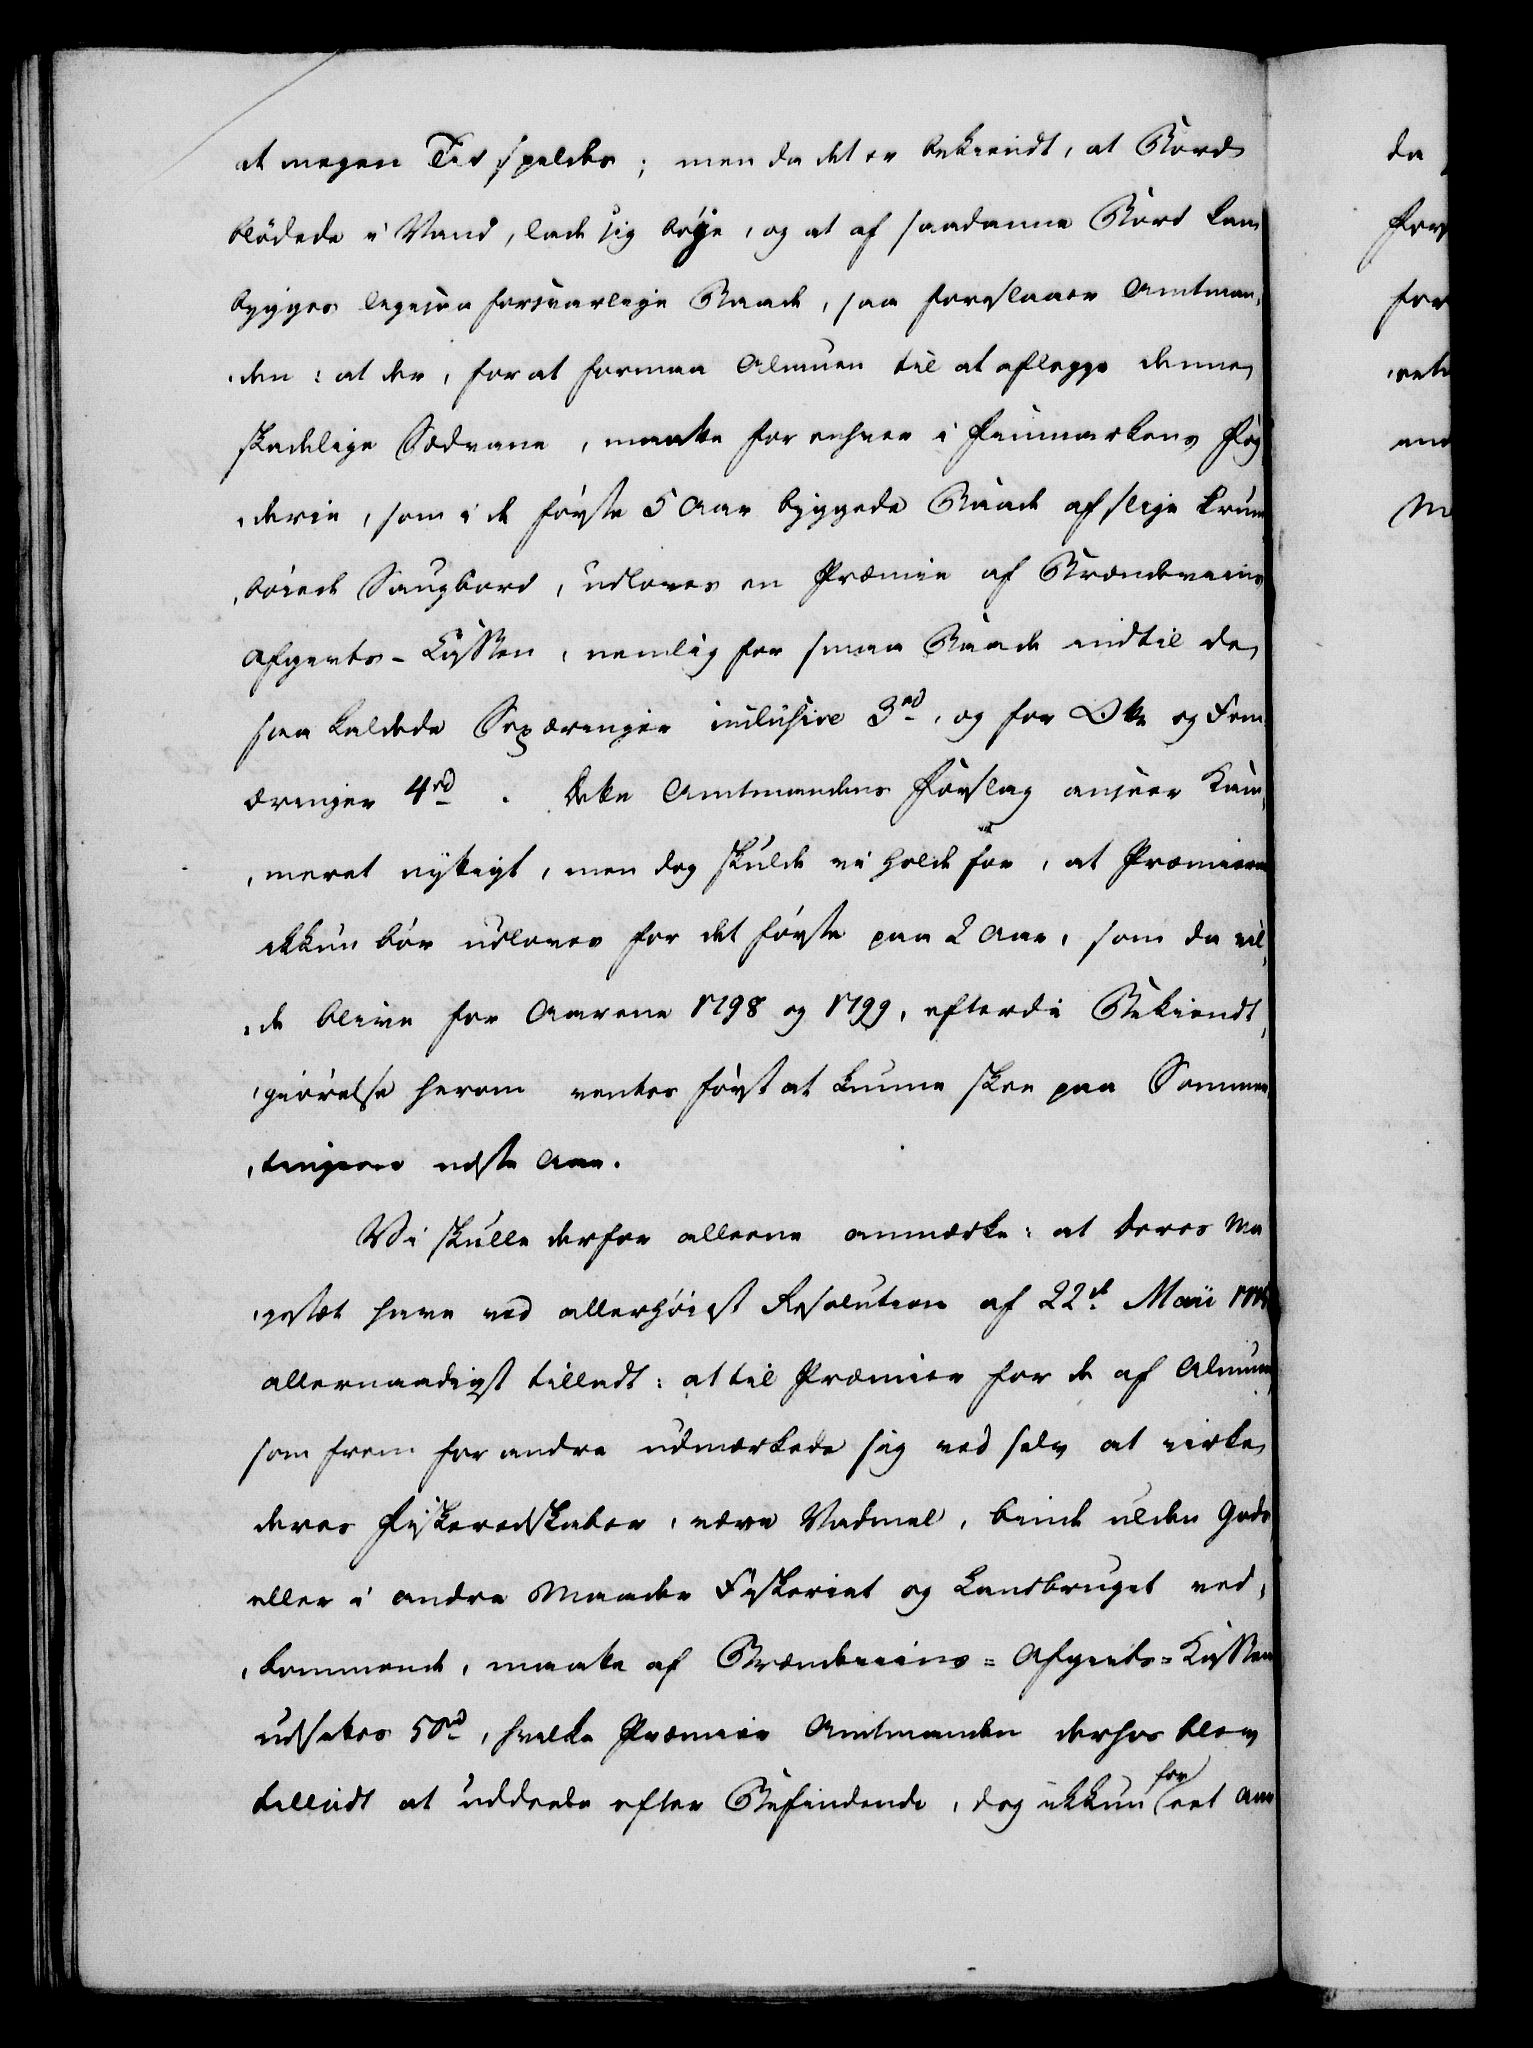 at megen Tid spildes; men da det er bekiendt, at Bord
blödede i Vand, lade sig böye, og at af saadanne Bord kan
bygges ligesaa forsvarlige Baade, saa foreslaaer Amtman,
,den: at der, for at formaa Almuen til at aflegge denne
skadelige Sædvane, maatte for enhver i Finmarkens Fog,
,derie, som i de förste 5 Aar byggede Baade af slige krum,
,böiede Saugbord, udloves en Præmie af Brændeviins
Afgivts-Cassen, nemlig for smaa Baade indtil de
saa kaldede Sexæringer inclusive 3 rd, og for Otte og Fem
æringer 4 rd. Dette Amtmandens Forslag ansees Kam,
,meret nyttigt, men dog skulde vi holde for, at Præmierne
ikkun bör udloves for det förste paa 2 Aar, som da vil,
,de blive for Aarene 1798 og 1799, efterdi Bekiendt,
,giörelse herom ventes först at kunne skee paa Sommer
,tingene næste Aar.
Vi skulle derfor alleene anmærke: at Deres Ma
,jestæt have ved allerhöiest Resolution af 22de Maii
allernaadigst tilladt: at til Præmier for de af Almuen
som frem for andre udmærkede sig ved selv at virke
deres Fiskeredskaber, væve Vadmel, binde ulden Gods
eller i andre Maader Fiskeriet og Landbruget ved,
,kommende, maatte af Brændeviins=Afgivts=Cassen
udsættes 50 rd, hvilke Præmier Amtmanden derhos blev
tilladt at uddeele efter Befindende, dog ikkun for eet Aar
da
For
for